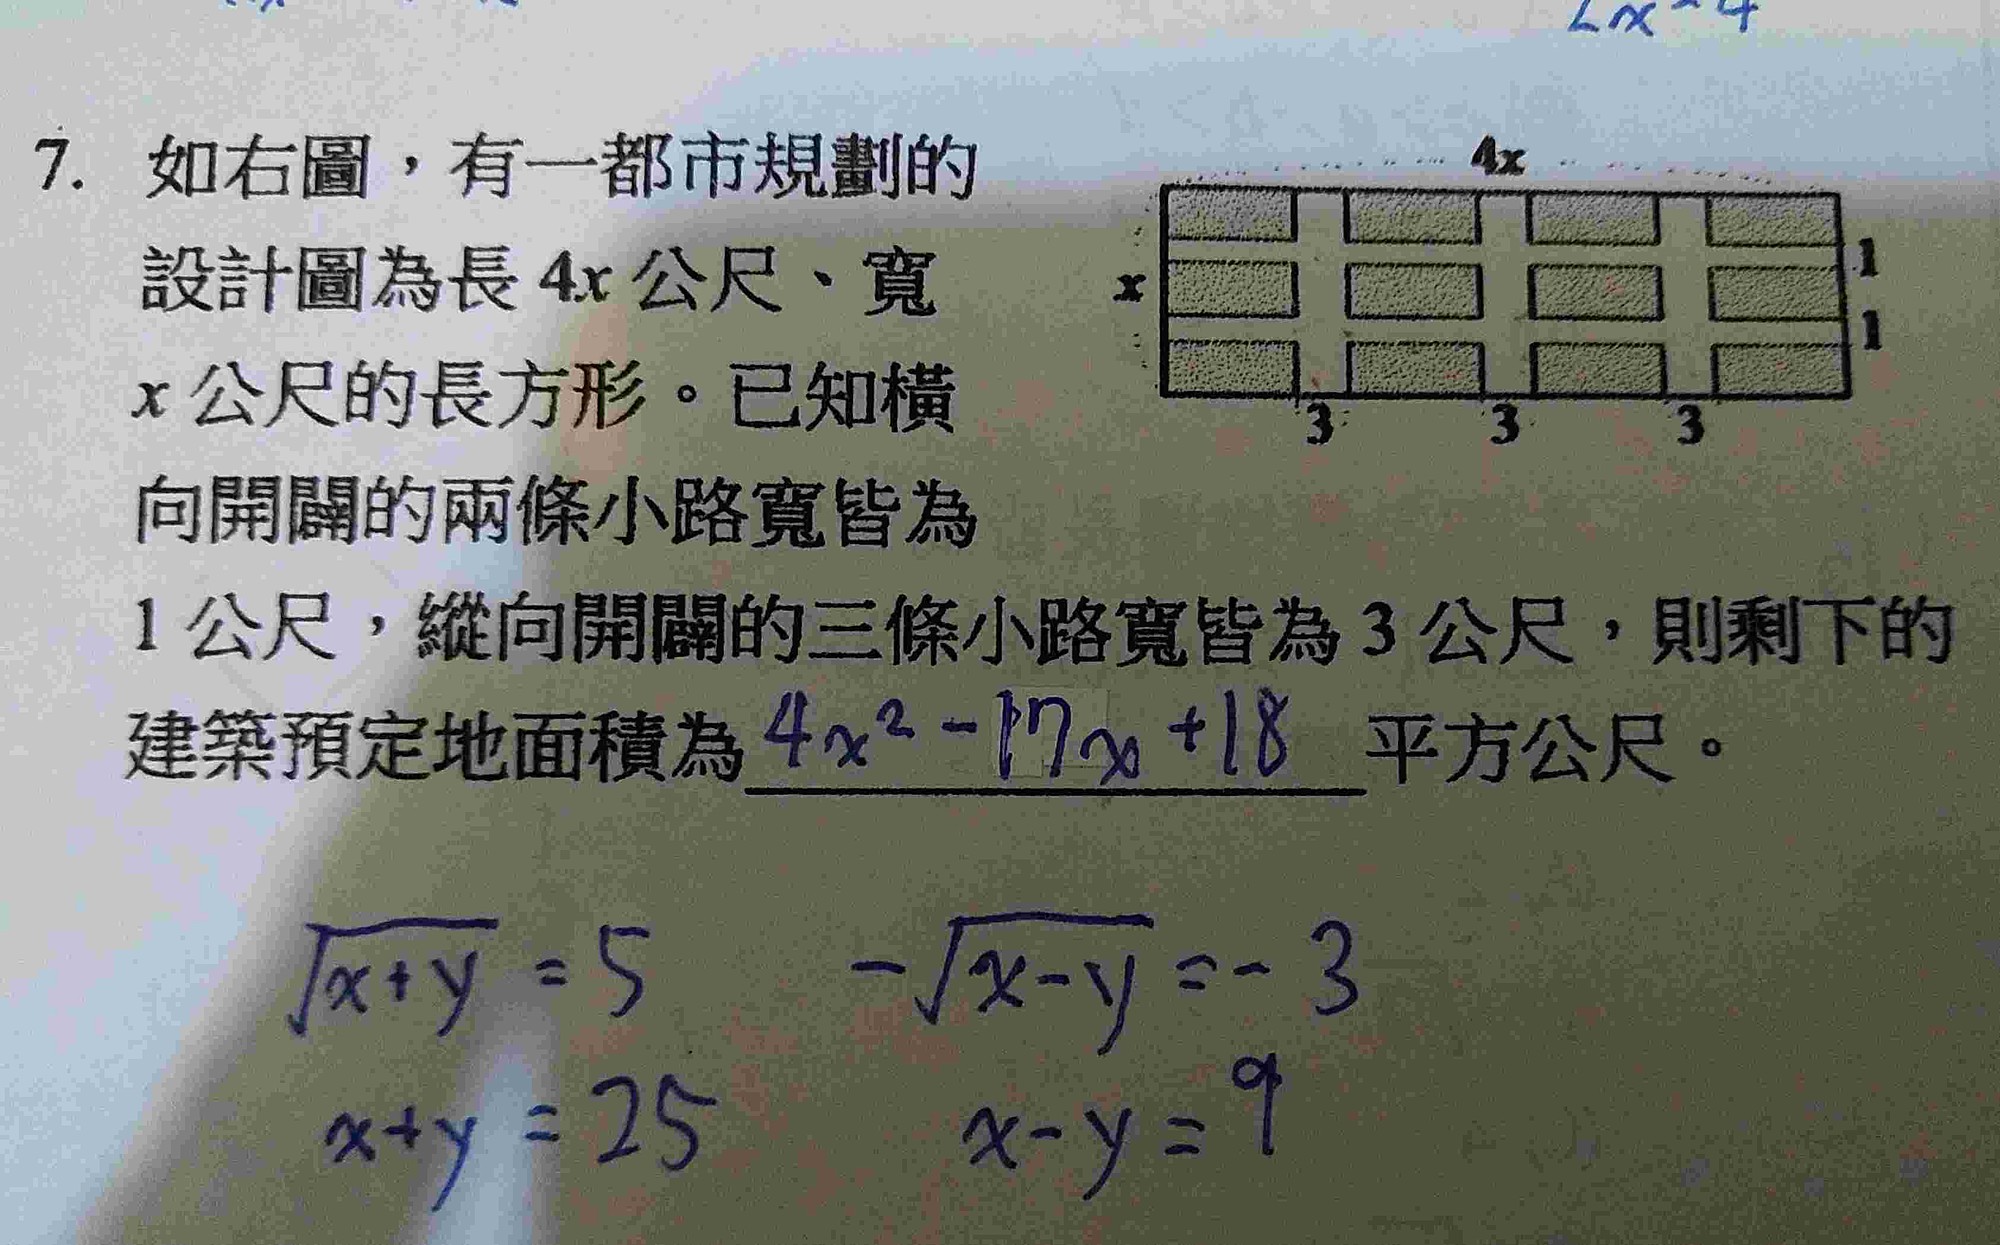 2x-4
7. 如右圖，有一都市規劃的
設計圖為長 4x 公尺、寬
x 公尺的長方形。已知橫
向開闢的兩條小路寬皆為
1 公尺，縱向開闢的三條小路寬皆為 3 公尺，則剩下的
建築預定地面積為 4x²-17x+18 平方公尺。
4x
x
1
1
3 3 3
√(x+y) = 5 -√(x-y) = -3
x+y = 25 x-y = 9